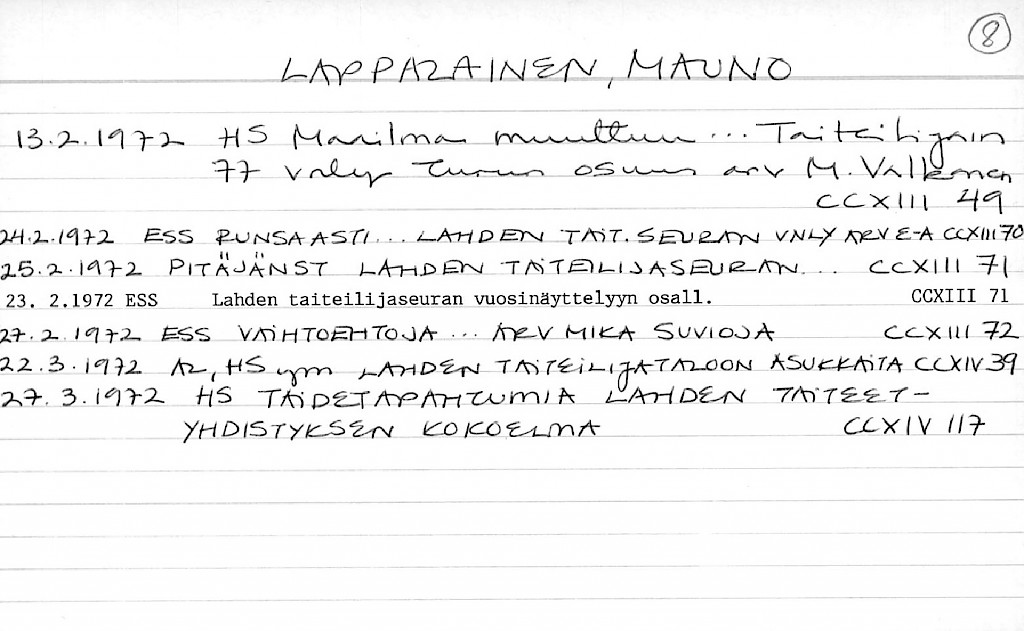 8
LAPPALAINEN, MAUNO
13.2.1972 HS Maailma muuttuu ... Taiteilijain
77 vnly Turun osuus arv M. Valkonen
CCXIII 49
24.2.1972 ESS RUNSAASTI... LAHDEN TAIT. SEURAN VNLY ARV E-A CCXIII 70
25.2.1972 PITÄJÄNST LAHDEN TAITEILIJASEURAN... CCXIII 71
23. 2.1972 ESS Lahden taiteilijaseuran vuosinäyttelyyn osall. CCXIII 71
27.2.1972 ESS VAIHTOEHTOJA ... ARV MIKA SUVIOJA CCXIII 72
22.3.1972 AL, HS ym LAHDEN TAITEILIJATALOON ASUKKAITA CCXIV 39
27.3.1972 HS TAIDETAPAHTUMIA LAHDEN TAITEET-
YHDISTYKSEN KOKOELMA CCXIV 117